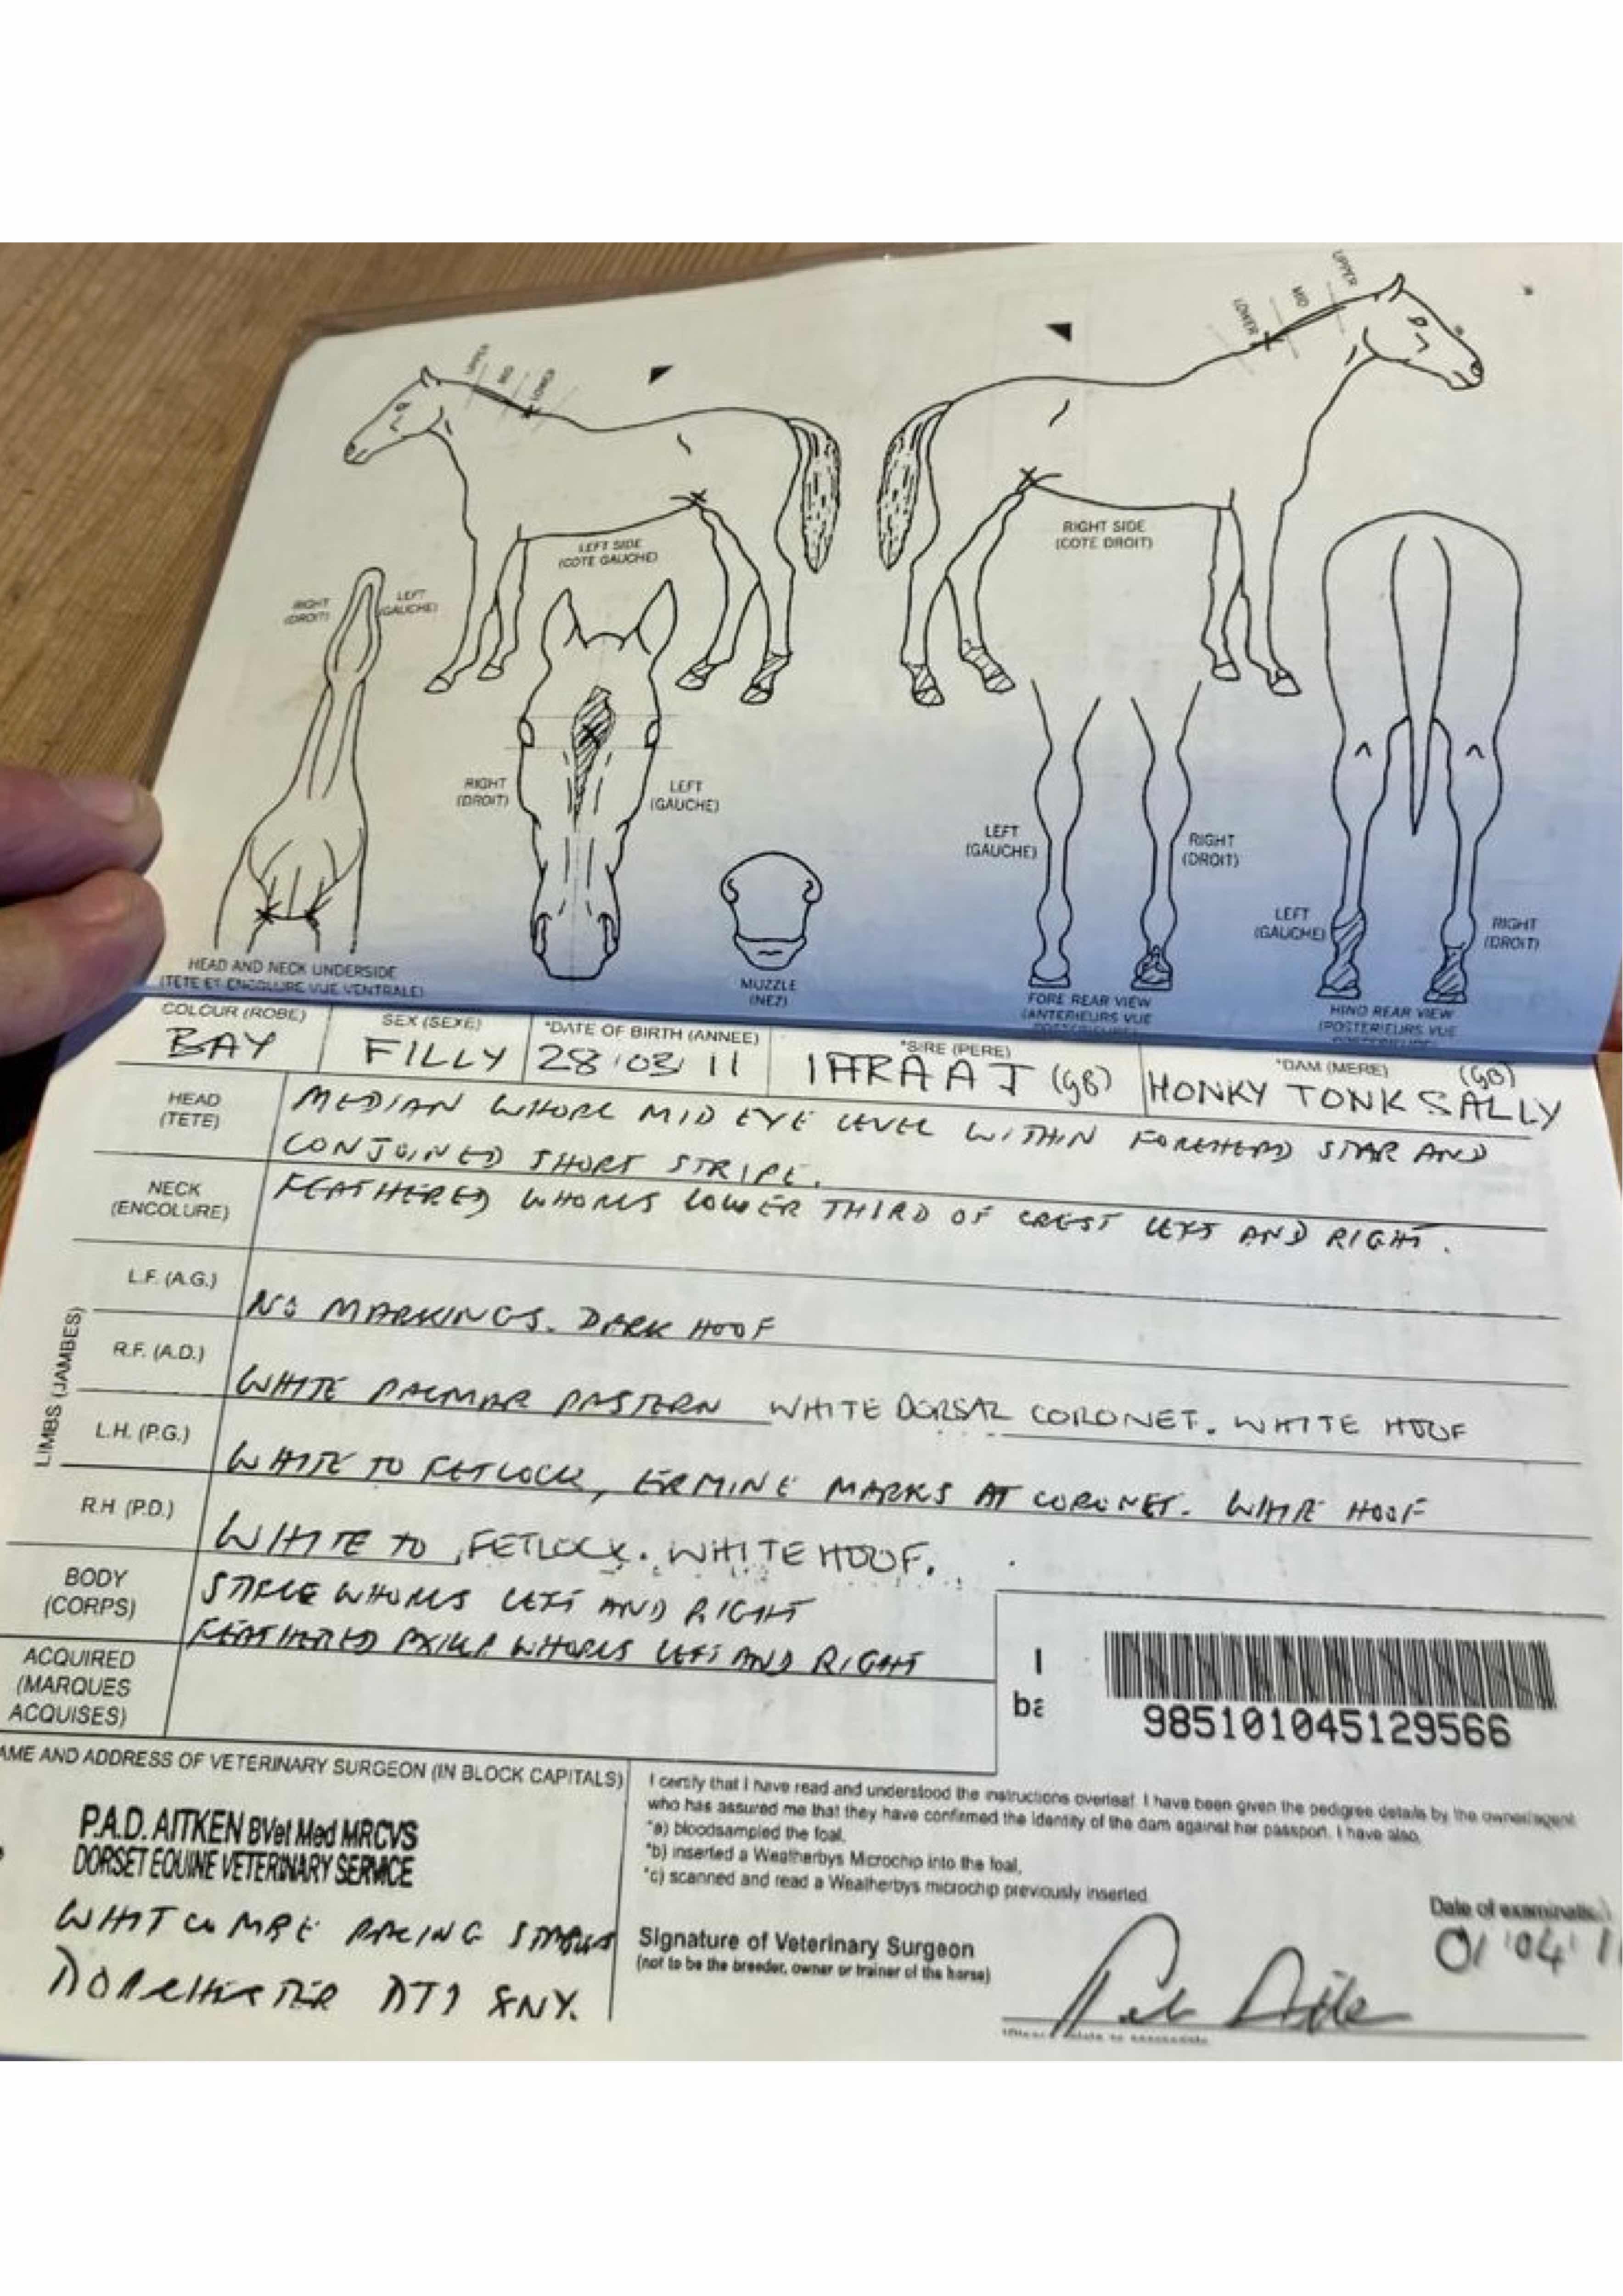 UPPER
MID
LOWER
LOWER
MID
UPPER
LEFT SIDE
(COTE GAUCHE)
RIGHT SIDE
(COTE DROIT)
RIGHT
(DROIT)
LEFT
(GAUCHE)
RIGHT
(DROIT)
LEFT
(GAUCHE)
LEFT
(GAUCHE)
RIGHT
(DROIT)
LEFT
(GAUCHE)
RIGHT
(DROIT)
HEAD AND NECK UNDERSIDE
(TETE ET ENCOLURE VUE VENTRALE)
MUZZLE
(NEZ)
FORE REAR VIEW
(ANTERIEURS VUE
POSTERIEURE)
HIND REAR VIEW
(POSTERIEURS VUE
POSTERIEURE)
COLOUR (ROBE)
BAY
SEX (SEXE)
FILLY
*DATE OF BIRTH (ANNEE)
28 03 11
*SIRE (PERE)
IFFRAAJ (GB)
*DAM (MERE) (GB)
HONKY TONK SALLY
HEAD
(TETE)
MEDIAN WHORL MID EYE LEVEL WITHIN FOREHEAD STAR AND
CONJOINED SHORT STRIPE.
NECK
(ENCOLURE)
FEATHERED WHORLS LOWER THIRD OF CREST LEFT AND RIGHT.
LIMBS (JAMBES)
L.F. (A.G.)
NO MARKINGS. DARK HOOF
R.F. (A.D.)
WHITE PALMAR PASTERN WHITE DORSAL CORONET. WHITE HOOF
L.H. (P.G.)
WHITE TO FETLOCK, ERMINE MARKS AT CORONET. WHITE HOOF
R.H (P.D.)
WHITE TO FETLOCK. WHITE HOOF.
BODY
(CORPS)
STIFLE WHORLS LEFT AND RIGHT
FEATHERED AXILLA WHORLS LEFT AND RIGHT
ACQUIRED
(MARQUES
ACQUISES)
985101045129566
AME AND ADDRESS OF VETERINARY SURGEON (IN BLOCK CAPITALS)
P.A.D. AITKEN BVet Med MRCVS
DORSET EQUINE VETERINARY SERVICE
WHITCOMBE RACING STABLES
DORCHESTER DT2 8NY.
I certify that I have read and understood the instructions overleaf. I have been given the pedigree details by the owner/agent
who has assured me that they have confirmed the identity of the dam against her passport. I have also,
*a) bloodsampled the foal,
*b) inserted a Weatherbys Microchip into the foal,
*c) scanned and read a Weatherbys microchip previously inserted.
Signature of Veterinary Surgeon
(not to be the breeder, owner or trainer of the horse)
Date of examination
01 04 11